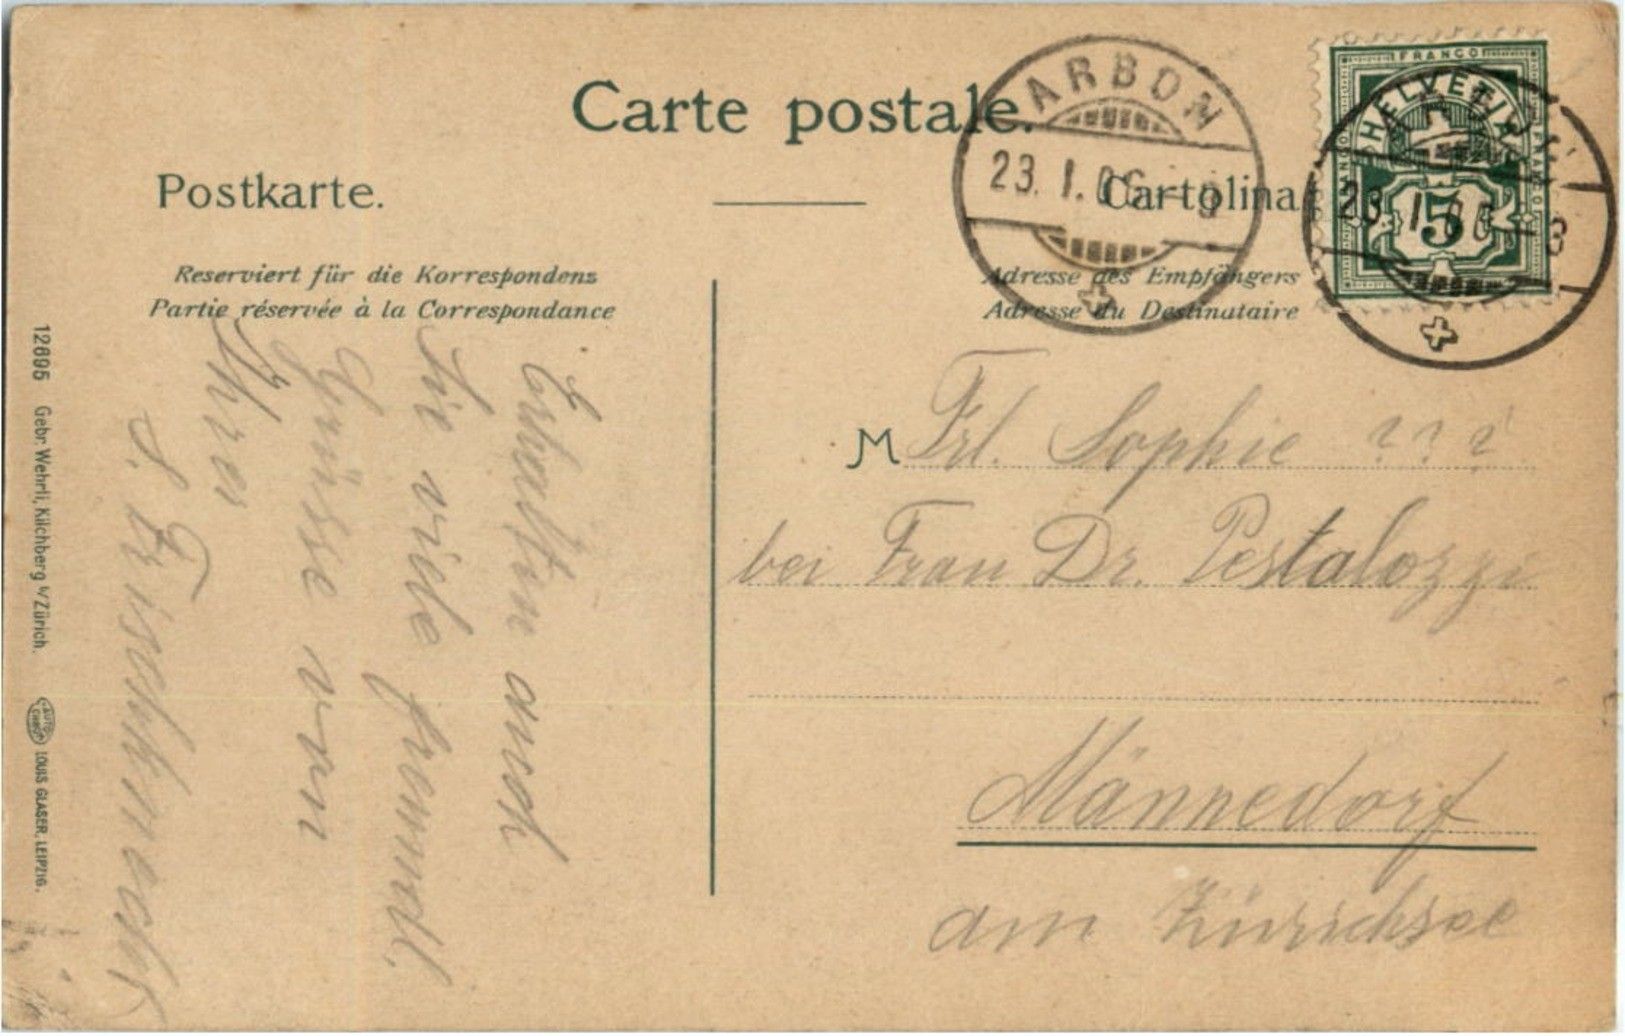 Carte postale.
Postkarte.
Cartolina
Reserviert für die Korrespondenz
Partie réservée à la Correspondance
Adresse des Empfängers
Adresse du Destinataire
ARBON
23. I. 06
FRANCO
HELVETIA
FRANCO
FRANCO
5
23. I. 06 - 8
M Frl. Sophie ? ? ?
bei Frau Dr. Pestalozzi
Männedorf
am Zürichsee
Erhalten auch
Sie viele freundl.
Grüsse von
Ihrer
12695 Gebr. Wehrli, Kilchberg b/Zürich.
LOUIS GLASER, LEIPZIG.